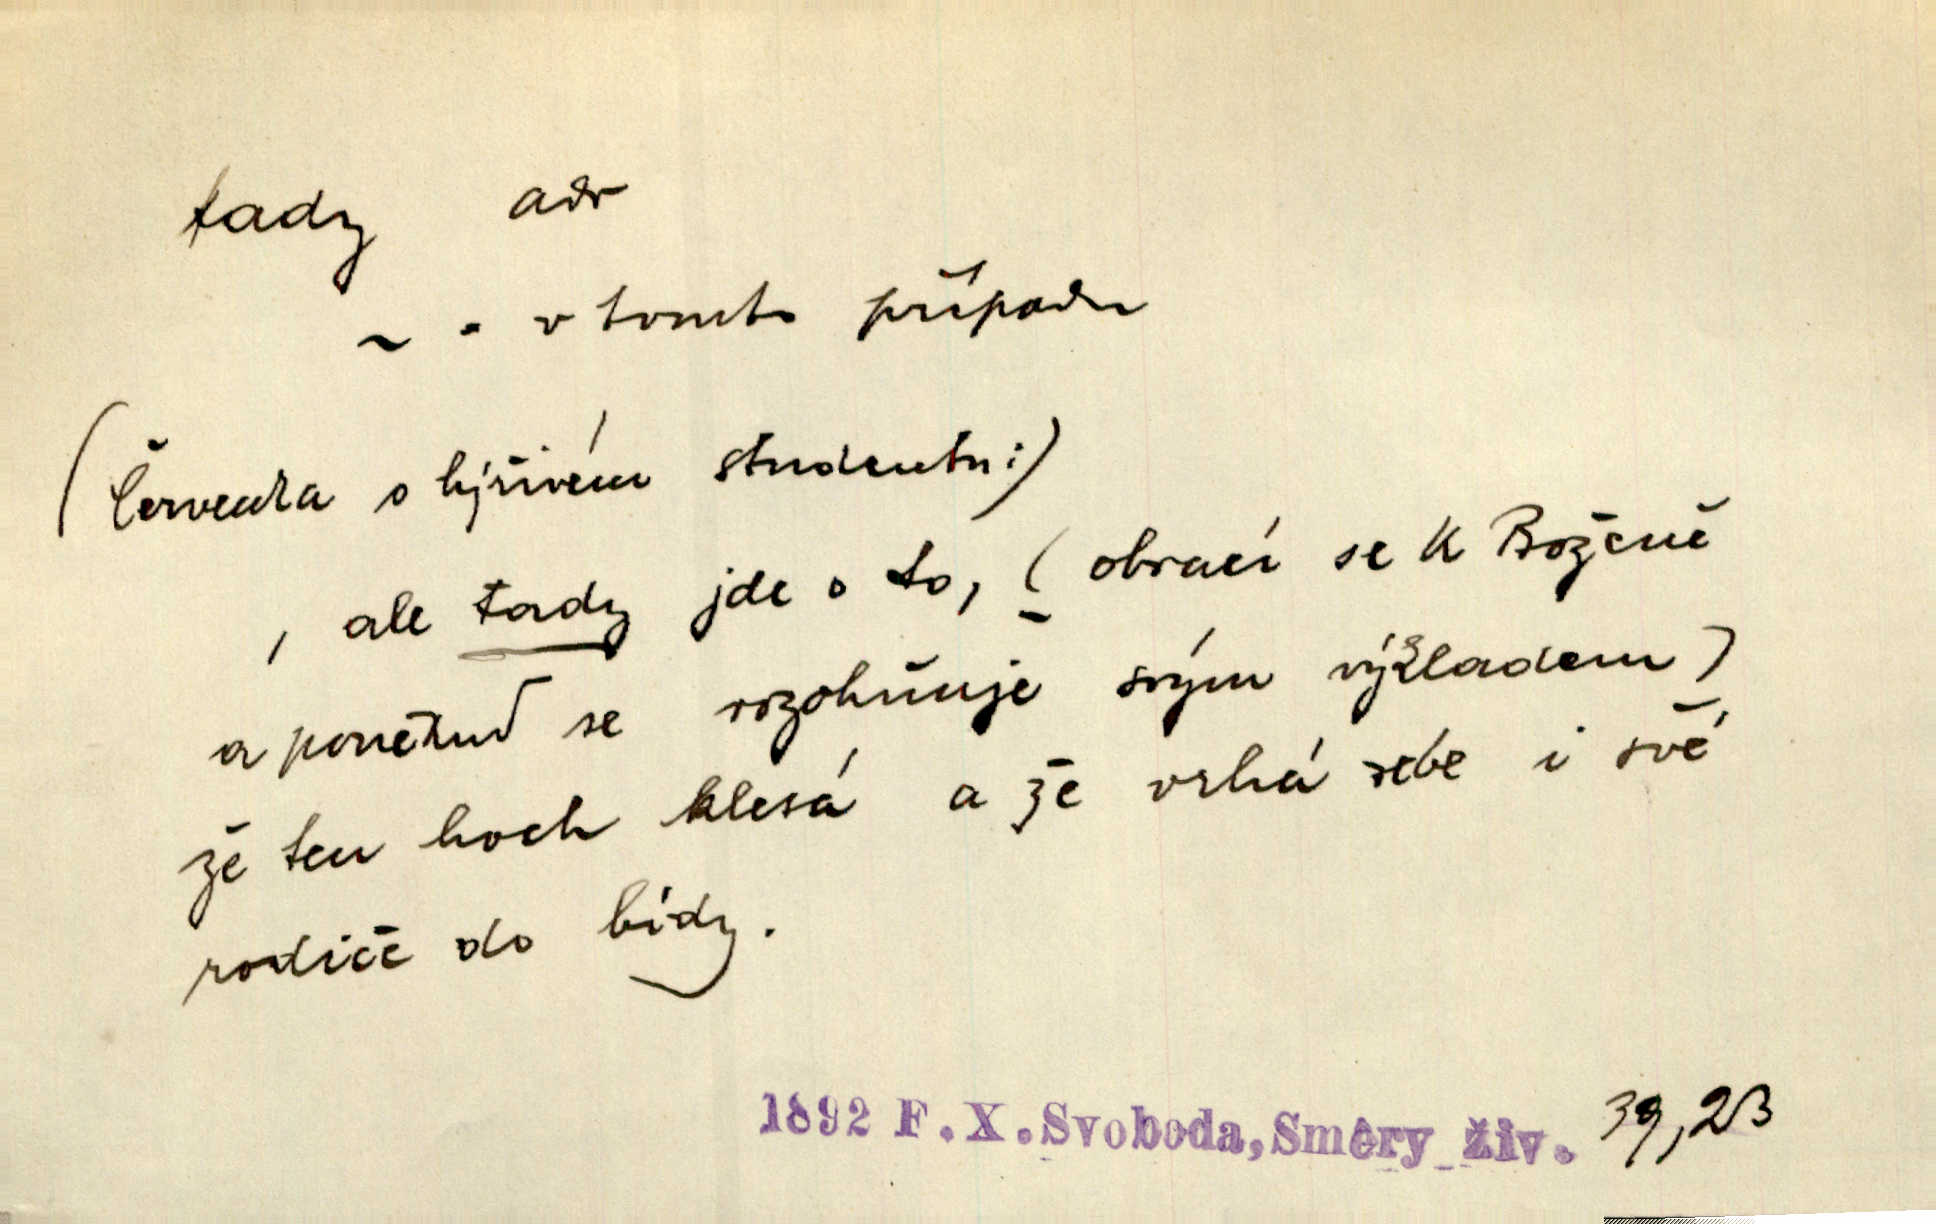 tady adv
~ - v tomto případu
(Červenka o hýřivém studentu:)
, ale tady jde o to, (obrací se k Boženě
a poněkud se rozohňuje svým výkladem)
že ten hoch klesá a že vrhá sebe i své
rodiče do bídy.
1892 F.X.Svoboda,Směry živ. 39,23